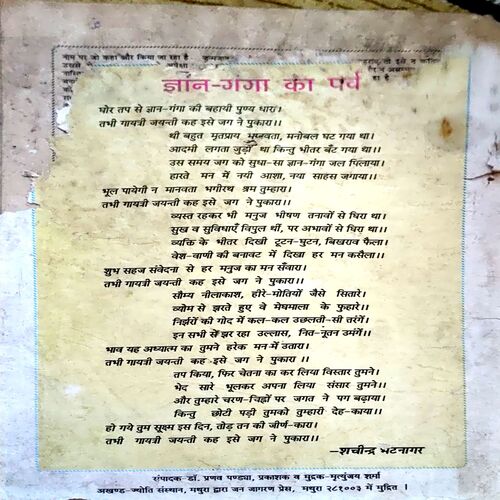 नाम पर जो कहा और किया जा रहा है
ज्ञान-गंगा का पर्व
घोर तप से ज्ञान-गंगा की बहायी पुण्य धारा।
तभी गायत्री जयन्ती कह इसे जग ने पुकारा।।
थी बहुत मृतप्राय मनोबल घट गया था।
आदमी लगता जुड़ा था किन्तु भीतर बँट गया था।।
उस समय जग को सुधा-सा ज्ञान-गंगा जल पिलाया।
हारते मन में नयी आशा, नया साहस जगाया।।
भूल पायेगी न मानवता भगीरथ श्रम तुम्हारा।
तभी गायत्री जयन्ती कह इसे जग ने पुकारा।।
व्यस्त रहकर भी मनुज भीषण तनावों से घिरा था।
सुख व सुविधाएँ विपुल थीं, पर अभावों से घिरा था।।
व्यक्ति के भीतर दिखी टूटन-घुटन, बिखराव फैला।
वेश-वाणी की बनावट में दिखा हर मन कसैला।।
शुभ सहज संवेदना से हर मनुज का मन सँवारा।
तभी गायत्री जयन्ती कह इसे जग ने पुकारा।।
सौम्य नीलाकाश, हीरे-मोतियों जैसे सितारे।
व्योम से झरते हुए वे मेघमाला के फुहारे।।
निर्झरों की गोद में कल-कल उछलती-सी तरंगें।
इन सभी से झर रहा उल्लास, नित-नूतन उमंगें।।
भाव यह अध्यात्म का तुमने हरेक मन में उतारा।
तभी गायत्री जयन्ती कह इसे जग ने पुकारा ।।
तप किया, फिर चेतना का कर लिया विस्तार तुमने।
भेद सारे भूलकर अपना लिया संसार तुमने।।
और तुम्हारे चरण-चिह्नों पर जगत ने पग बढ़ाया।
किन्तु छोटी पड़ी तुमको तुम्हारी देह-काया।।
हो गये तुम सूक्ष्म इस दिन, तोड़ तन की जीर्ण-कारा।
तभी गायत्री जयन्ती कह इसे जग ने पुकारा ।।
—शचीन्द्र भटनागर
संपादक-डॉ. प्रणव पण्ड्या, प्रकाशक व मुद्रक-मृत्युंजय शर्मा
अखण्ड-ज्योति संस्थान, मथुरा द्वारा जन जागरण प्रेस, मथुरा २८१००३ में मुद्रित ।